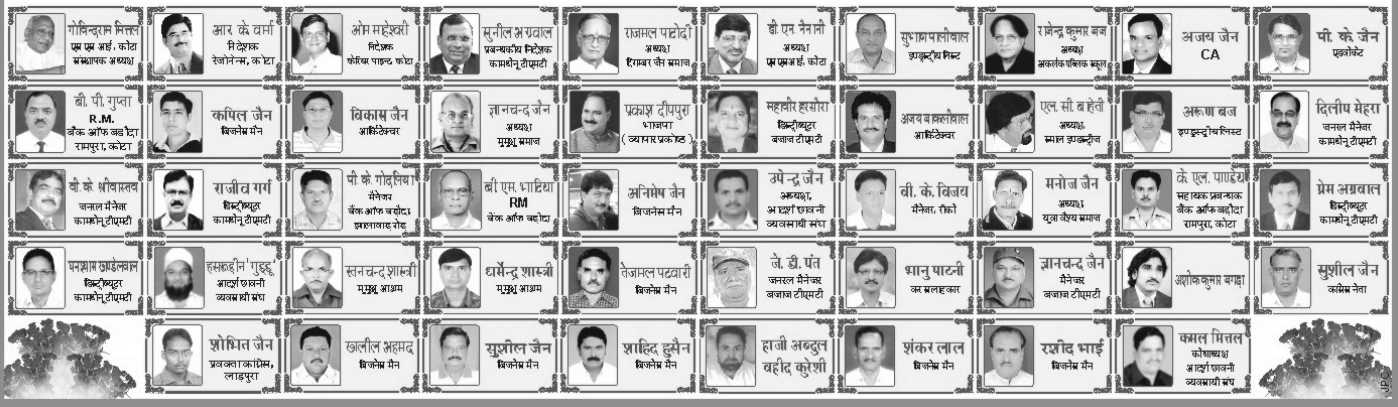 गोविन्दराम मित्तल
एस एस आई, कोटा
संस्थापक अध्यक्ष
आर के वर्मा
निदेशक
रेजोनेन्स, कोटा
ओम महेश्वरी
निदेशक
केरियर पाइन्ट, कोटा
सुनील अग्रवाल
प्रबन्धकीय निदेशक
कामधेनू टीएमटी
राजमल पाटोदी
अध्यक्ष
दिगम्बर जैन समाज
डी. एन. नैनानी
अध्यक्ष
एस एस आई. कोटा
सुभाष पालीवाल
इण्डस्ट्रीयलिस्ट
राजेन्द्र कुमार बज
अध्यक्ष
अकलंक पब्लिक स्कूल
अजय जैन
CA
पी. के जैन
एडवोकेट
बी. पी. गुप्ता
R.M.
बैंक ऑफ बडौदा
रामपुरा, कोटा
कपिल जैन
बिजनेस मैन
विकास जैन
आर्किटेक्चर
ज्ञानचन्द जैन
अध्यक्ष
मुमुक्षु समाज
प्रकाश दीगपुरा
भाजपा
( व्यापार प्रकोष्ठ )
महावीर हरसौरा
डिस्ट्रीब्यूटर
बजाज टीएमटी
अजय बाकलीवाल
आर्किटेक्चर
एल. सी. बाहेती
अध्यक्ष,
स्माल इण्डस्ट्रीज
अरूण बज
इण्डस्ट्रीयलिस्ट
दिलीप मेहरा
जनरल मैनेजर
कामधेनू टीएमटी
वी. के. श्रीवास्तव
जनरल मैनेजर
कामधेनू टीएमटी
राजीव गर्ग
डिस्ट्रीब्यूटर
कामधेनू टीएमटी
पी. के. गोदलिया
मैनेजर
बैंक ऑफ बडौदा
झालावाड रोड
बी एम. भाटिया
RM
बैंक ऑफ बडौदा
अनिमेष जैन
बिजनेस मैन
उपेन्द्र जैन
अध्यक्ष,
आदर्श छावनी
व्यवसायी संघ
वी. के. विजय
मैनेजर, रीको
मनोज जैन
अध्यक्ष
युवा वैश्य समाज
के एल. पाण्डेय
सहायक प्रबन्धक
बैंक ऑफ बडौदा
रामपुरा, कोटा
प्रेम अग्रवाल
डिस्ट्रीब्यूटर
कामधेनू टीएमटी
घनश्याम खण्डेलवाल
डिस्ट्रीब्यूटर
कामधेनू टीएमटी
हसबुद्दीन 'गुड्डू'
आदर्श छावनी
व्यवसायी संघ
रतनचन्द शास्त्री
मुमुक्षु आश्रम
धर्मेन्द्र शास्त्री
मुमुक्षु आश्रम
तेजमल पटवारी
बिजनेस मैन
जे. डी. पंत
जनरल मैनेजर
बजाज टीएमटी
भानु पाटनी
कर सलाहकार
ज्ञानचन्द जैन
मैनेजर
बजाज टीएमटी
अशोक कुमार बगड़ा
सुशील जैन
कांग्रेस नेता
शोभित जैन
प्रवक्ता कांग्रेस,
लाडपुरा
खलील अहमद
बिजनेस मैन
सुशील जैन
बिजनेस मैन
शाहिद हुसैन
बिजनेस मैन
हाजी अब्दुल
वहीद कुरेशी
शंकर लाल
बिजनेस मैन
रशीद भाई
बिजनेस मैन
कमल मित्तल
कोषाध्यक्ष
आदर्श छावनी
व्यवसायी संघ
JPC